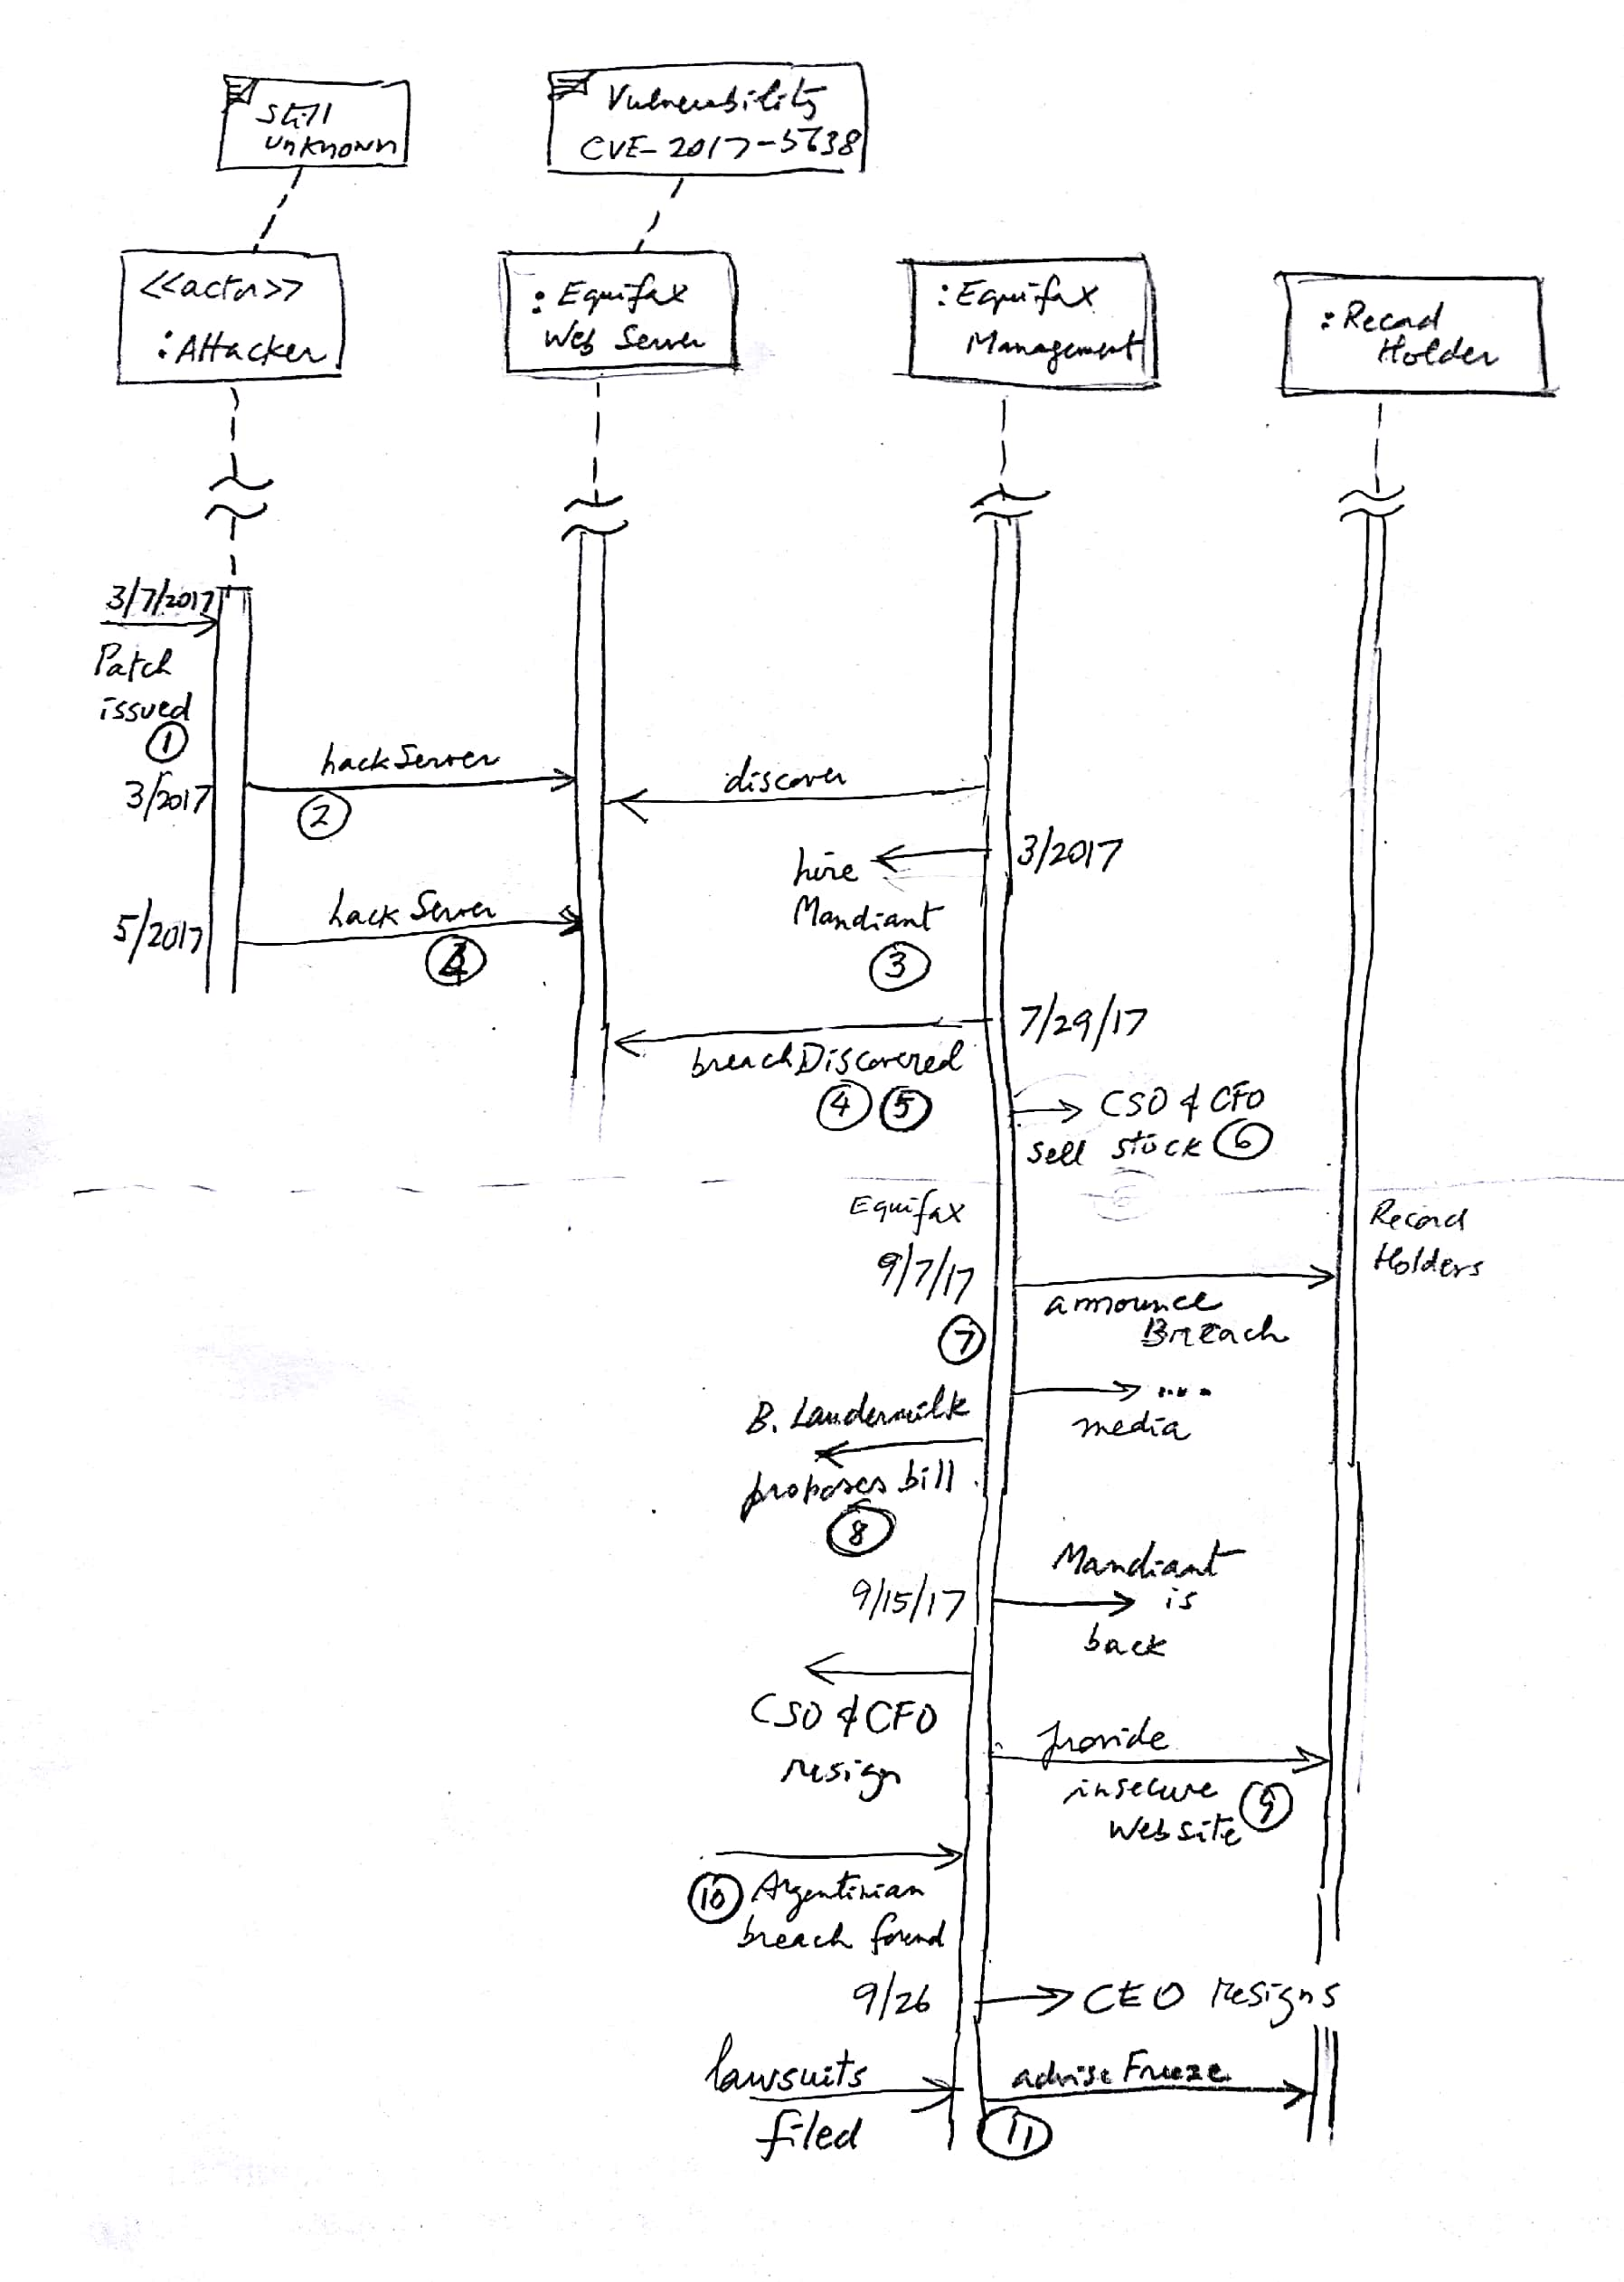 Still
unknown
Vulnerability
CVE-2017-5638
<<actor>>
:Attacker
:Equifax
Web Server
:Equifax
Management
:Record
Holder
3/7/2017
Patch
issued
1
3/2017
hackServer
2
discover
3/2017
hire
Mandiant
3
5/2017
hackServer
4
7/29/17
breachDiscovered
4 5
CSO & CFO
sell stock 6
Equifax
Record
Holders
9/7/17
announce
Breach
7
....
media
B. Laudermilk
proposes bill
8
9/15/17
Mandiant
is
back
CSO & CFO
resign
provide
insecure
Website 9
10 Argentinian
breach found
9/26
CEO resigns
lawsuits
filed
adviseFreeze
11